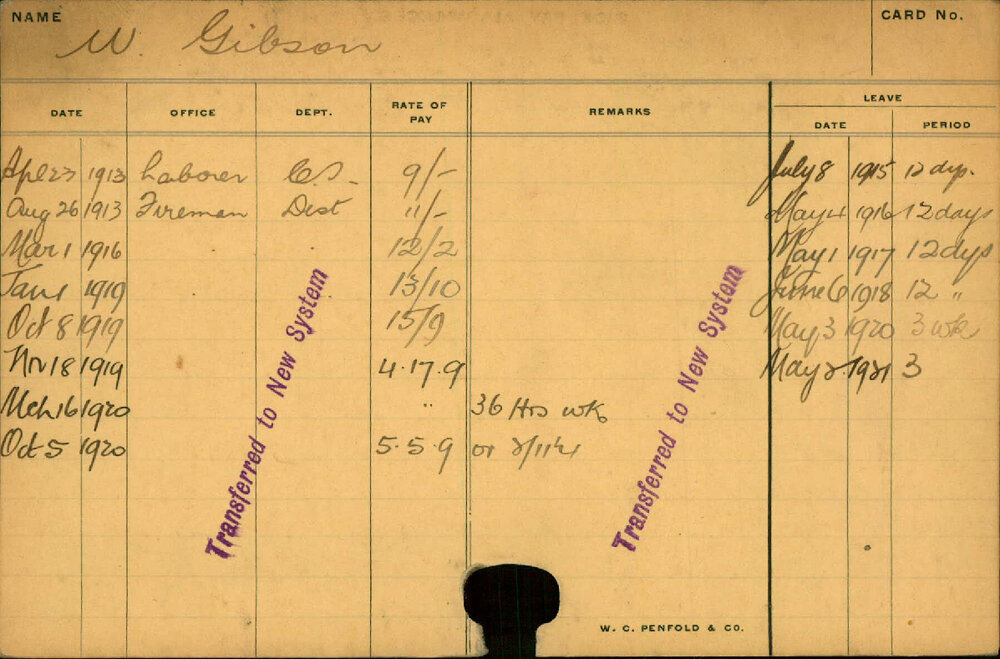 NAME
W. Gibson
CARD No.
DATE OFFICE DEPT. RATE OF PAY REMARKS LEAVE
DATE PERIOD
Apl 23 1913 Laborer C.S. 9/- July 8 1915 12 dys.
Aug 26 1913 Fireman Dist 11/- May 4 1916 12 days
Mar 1 1916 12/2 May 1 1917 12 dys
Jan 1 1919 13/10 June 6 1918 12 "
Oct 8 1919 15/9 May 3 1920 3 wk
Nov 18 1919 4.17.9 May 2 1921 3
Mch 16 1920 " 36 Hrs wk
Oct 5 1920 5.5.9 or
Transferred to New System
Transferred to New System
W. C. PENFOLD & CO.